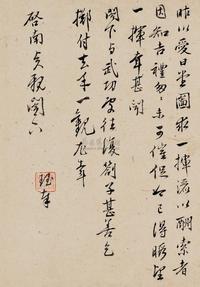 昨以愛日堂圖求一揮灑以酬索者
因知吉禮匆匆未可催促今已得暇望
一揮耳甚聞
閣下與武功安往復劄子甚善乞
擲付去手一觀尤幸
啓南貞親閣下
珵奉